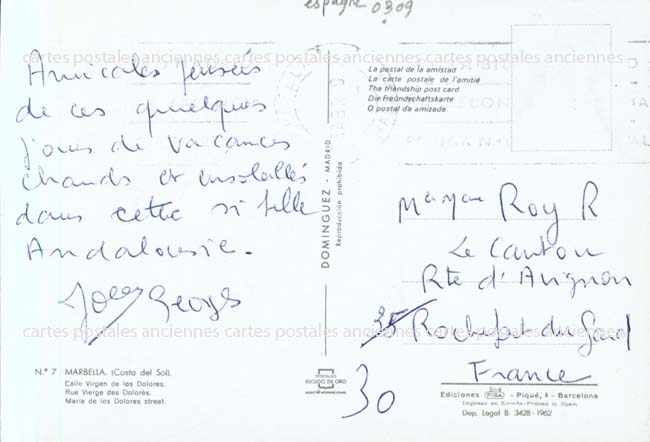 espagne 0309
cartes postales anciennes cartes postales anciennes cartes postales anciennes
Amicales pensées
de ces quelques
jours de vacances
chauds et ensoleillés
dans cette si belle
Andalousie.
Georges
La postal de la amistad
La carte postale de l'amitié
The friendship post card
Die freundschaftskarte
O postal da amizade
DOMINGUEZ - MADRID
Reproducción prohibida
Roy R
Le Canton
Rte d'Avignon
35 Rochefort du Gard
30
France
cartes postales anciennes cartes postales anciennes cartes postales anciennes
N.º 7 MARBELLA. (Costa del Sol).
Calle Virgen de los Dolores.
Rue Vierge des Dolorès.
Maria de los Dolores street.
POSTALES
ESCUDO DE ORO
Ediciones FISA - Piqué, 4 - Barcelona
Impreso en España-Printed in Spain
Dep. Legal B. 3428-1962